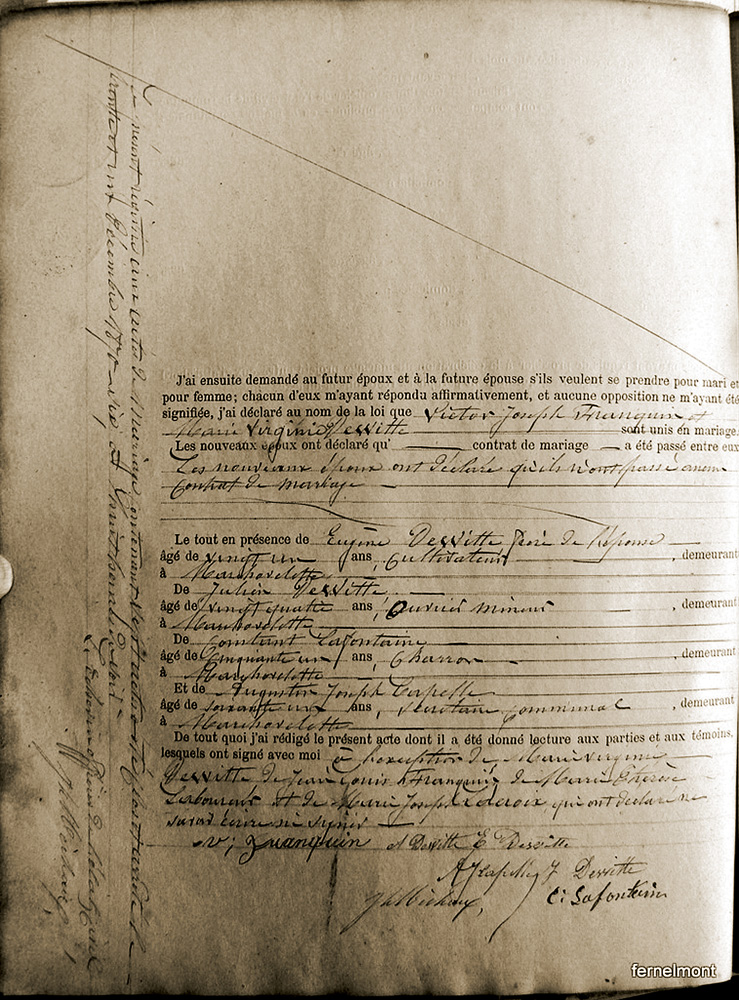 J'ai ensuite demandé au futur époux et à la future épouse s'ils veulent se prendre pour mari et
pour femme; chacun d'eux m'ayant répondu affirmativement, et aucune opposition ne m'ayant été
signifiée, j'ai déclaré au nom de la loi que Victor Joseph Franquin et
Marie Virginie Dewitte sont unis en mariage.
Les nouveaux époux ont déclaré qu' contrat de mariage a été passé entre eux
Les nouveaux époux ont déclaré qu'ils n'ont passé aucun
Contrat de mariage
Le tout en présence de Eugène Dewitte frère de l'épouse
âgé de vingt un ans, Cultivateur, demeurant
à Marchovelette
De Julien Dewitte
âgé de vingt quatre ans, Ouvrier mineur, demeurant
à Marchovelette
De Constant Lafontaine
âgé de Cinquante un ans, Charron, demeurant
à Marchovelette
Et de Augustin Joseph Capelle
âgé de soixante ans, Secrétaire communal, demeurant
à Marchovelette
De tout quoi j'ai rédigé le présent acte dont il a été donné lecture aux parties et aux témoins,
lesquels ont signé avec moi à l'exception de Marie Virginie
Dewitte de Jean Louis Franquin, de Marie Thérèse
et de Marie Joseph qui ont déclaré ne
savoir écrire ni signer
V; Franquin Dewitte E Dewitte
A J Capelle J Dewitte
C: Lafontaine
Le présent registre aux actes de Mariage contenant
trente et un Décembre
fernelmont